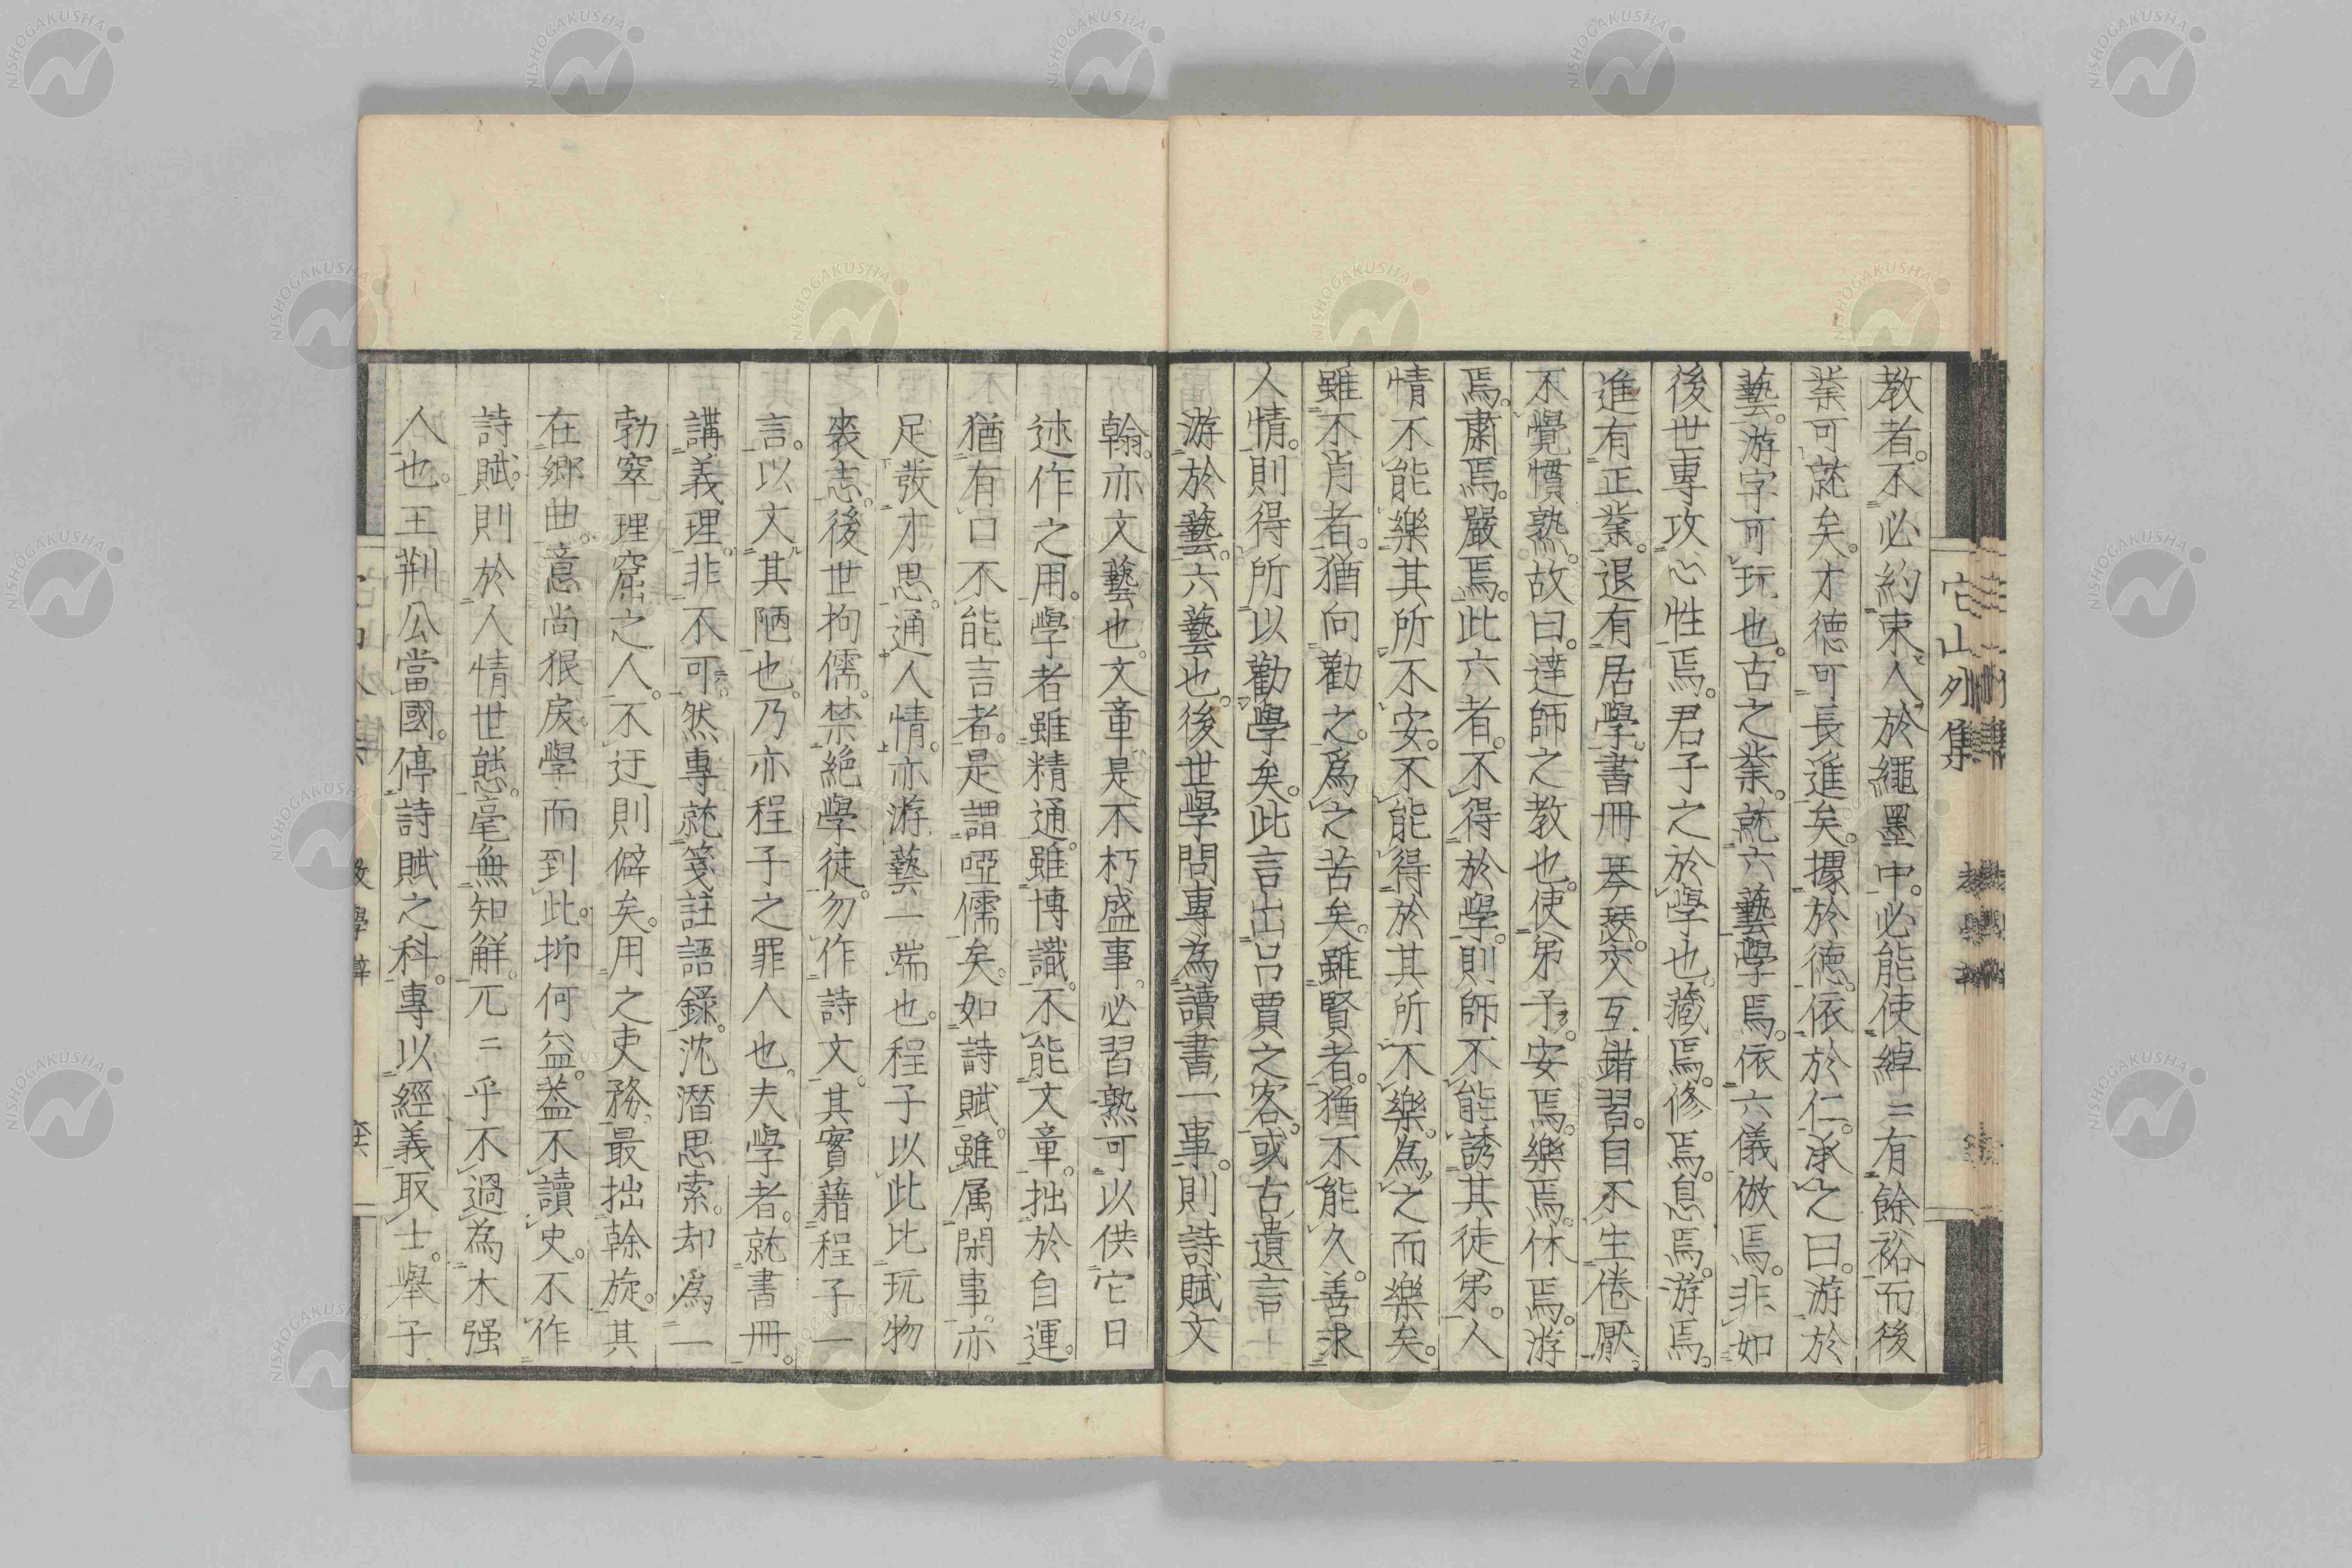 教者。不必約束人於繩墨中。必能使綽〻有餘裕而後
業可就矣。才德可長進矣。據於德。依於仁。承之曰。游於
藝。游字可玩也。古之業。就六藝學焉。依六儀倣焉。非如
後世專攻心性焉。君子之於學也。藏焉。修焉。息焉。游焉。
進有正業。退有居學。書冊琴瑟。交互錯習。自不生倦厭。
不覺慣熟。故曰。達師之教也。使弟子。安焉。樂焉。休焉。游
焉。肅焉。嚴焉。此六者。不得於學。則師不能誘其徒弟。人
情不能樂其所不安。不能得於其所不樂。為之而樂矣。
雖不肖者。猶向勸之。爲之苦矣。雖賢者。猶不能久。善求
人情。則得所以勸學矣。此言出呂賈之客。或古遺言
游於藝。六藝也。後世學問專為讀書一事。則詩賦文
翰。亦文藝也。文章是不朽盛事。必習熟可以供它日
述作之用。學者雖精通。雖博識。不能文章。拙於自運。
猶有口不能言者。是謂啞儒矣。如詩賦。雖属閑事。亦
足發才思。通人情。亦游藝一端也。程子以此比玩物
喪志。後世拘儒。禁絕學徒。勿作詩文。其實藉程子一
言。以文其陋也。乃亦程子之罪人也。夫學者。就書冊。
講義理。非不可。然專就箋註語錄。沈潛思索。却爲一
勃窣理窟之人。不迂則僻矣。用之吏務。最拙幹旋。其
在鄉曲。意尚狠戾。學而到此。抑何益。蓋不讀史。不作
詩賦。則於人情世態。毫無知解。兀〻乎不過為木强
人也。王荆公當國。停詩賦之科。專以經義取士。舉子
它山外集